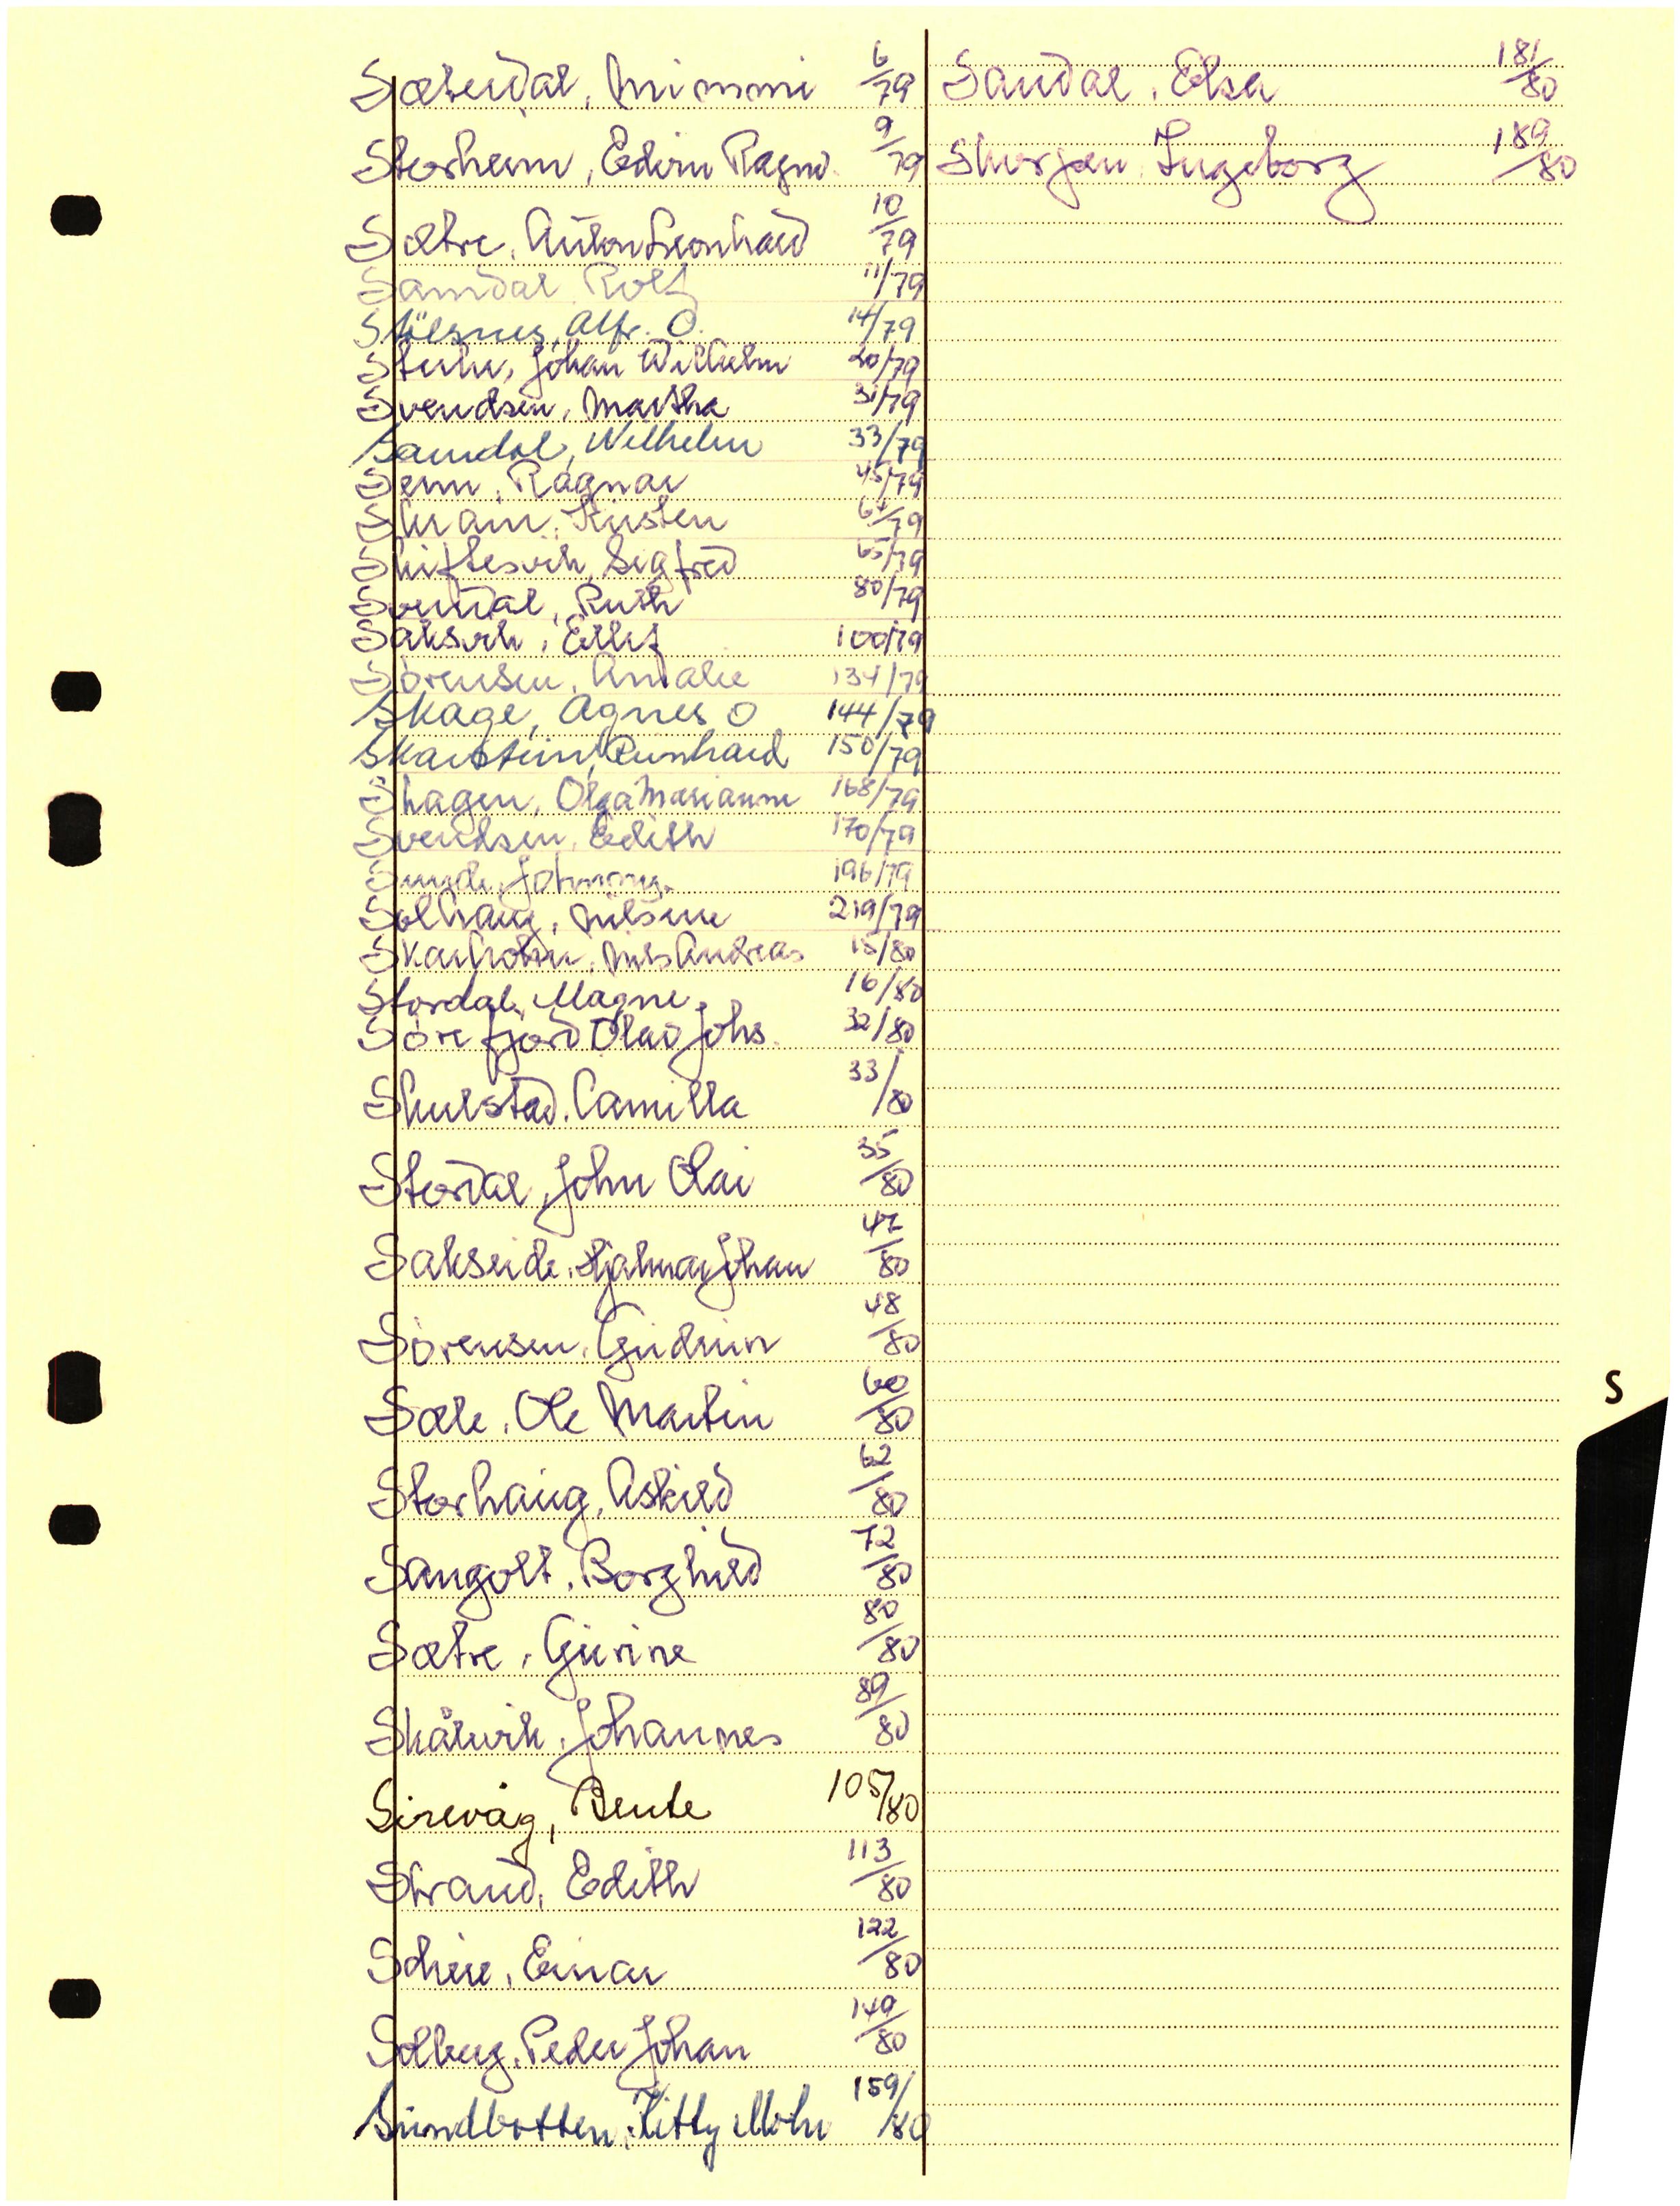 Sæterdal, Mimmi 6/79
Storheim, Edvin Ragnv. 9/79
Sætre, Anton Leonhard 10/79
Samdal Rolf 11/79
Stölsnes, Alfr. O. 14/79
Johan Wilhelm 20/79
Svendsen, Martha 31/79
Samdal, Wilhelm 33/79
Senn, Ragnar 45/79
Kirsten 64/79
Skiftesvik, Sigfred 65/79
Svendal, Ruth 80/79
Saksvik, Eilif 100/79
Sörensen, Amalie 134/79
Skage, Agnes O 144/79
Skarstein, Reinhard 150/79
Skagen, Olga Marianne 168/79
Svendsen, Edith 170/79
196/79
Solhaug, Nilsine 219/79
Skarholm, Nils Andreas 15/80
Stordal, Magne 16/80
Sörefjord Olav Johs. 32/80
Skulstad, Camilla 33/80
Stordal, John Olai 35/80
Sakseide, Hjalmar Johan 47/80
Sörensen, Gudrun 48/80
Sæle, Ole Martin 60/80
Storhaug, Askild 62/80
Sangolt, Borghild 72/80
Sætre, Gurine 80/80
Skålvik, Johannes 89/80
Sirevåg, Bente 105/80
Strand, Edith 113/80
Einar 122/80
Solberg, Peder Johan 149/80
Sundbotten, Kitty Mohn 159/80
Sandal, Elsa 181/80
Skorpen, Ingeborg 189/80
S